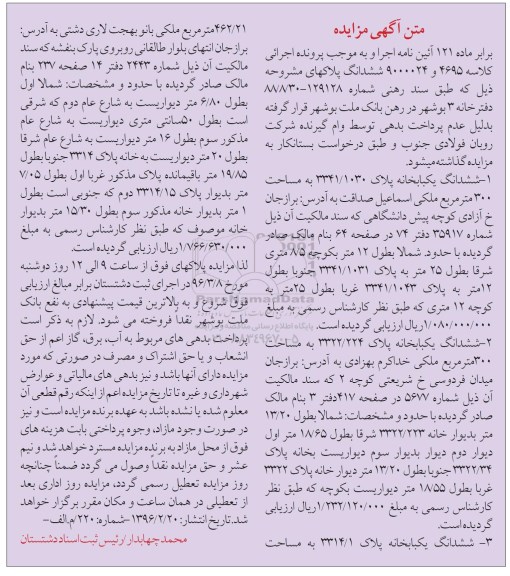 متن آگهی مزایده
برابر ماده ۱۲۱ آئین نامه اجرا و به موجب پرونده اجرائی
کلاسه ۴۶۹۵ و ۹۰۰۰۰۲۴ ششدانگ پلاکهای مشروحه
ذیل که طبق سند رهنی شماره ۱۲۹۱۲۸-۸۸/۸/۳۰
دفترخانه ۳ بوشهر در رهن بانک ملت بوشهر قرار گرفته
بدلیل عدم پرداخت بدهی توسط وام گیرنده شرکت
رویان فولادی جنوب و طبق درخواست بستانکار به
مزایده گذاشته میشود.
۱-ششدانگ یکبابخانه پلاک ۳۳۴۱/۱۰۳۰ به مساحت
۳۰۰ مترمربع ملکی اسماعیل صداقت به آدرس: برازجان
خ آزادی کوچه پیش دانشگاهی که سند مالکیت آن ذیل
شماره ۳۵۹۱۷ دفتر ۷۴ در صفحه ۶۴ بنام مالک صادر
گردیده با حدود. شمالا بطول ۱۲ متر بکوچه ۸/۵ متری
شرقا بطول ۲۵ متر به پلاک ۳۳۴۱/۱۰۳۱ جنوبا بطول
۱۲متر به پلاک ۳۳۴۱/۱۰۴۳ غربا بطول ۲۵متر به
کوچه ۱۲ متری که طبق نظر کارشناس رسمی به مبلغ
۱/۰۸۰/۰۰۰/۰۰۰ریال ارزیابی گردیده است.
۲-ششدانگ یکبابخانه پلاک ۳۳۲۲/۲۲۴ به مساحت
۳۰۰مترمربع ملکی خداکرم بهزادی به آدرس: برازجان
میدان فردوسی خ شریعتی کوچه ۲ که سند مالکیت
آن ذیل شماره ۵۶۷۷ در صفحه ۴۱۷دفتر ۳ بنام مالک
صادر گردیده با حدود و مشخصات: شمالا بطول ۱۳/۲۰
متر بدیوار خانه ۳۳۲۲/۲۲۳ شرقا بطول ۱۸/۶۵ متر اول
دیوار دوم دیوار بدیوار سوم دیواریست بخانه پلاک
۳۳۲۲/۳۴ جنوبا بطول ۱۳/۲۰ متر دیوار خانه پلاک ۳۳۲۲
غربا بطول ۱۸/۵۵ متر دیواریست بکوچه که طبق نظر
کارشناس رسمی به مبلغ ۱/۲۳۲/۱۲۰/۰۰۰ریال ارزیابی
گردیده است.
۳- ششدانگ یکبابخانه پلاک ۳۳۱۴/۱ به مساحت
۴۶۲/۲۱مترمربع ملکی بانو بهجت لاری دشتی به آدرس:
برازجان انتهای بلوار طالقانی روبروی پارک بنفشه که سند
مالکیت آن ذیل شماره ۲۴۴۳ دفتر ۱۴ صفحه ۲۳۷ بنام
مالک صادر گردیده با حدود و مشخصات: شمالا اول
بطول ۶/۸۰ متر دیواریست به شارع عام دوم که شرقی
است بطول ۵۰سانتی متری دیواریست به شارع عام
مذکور سوم بطول ۱۶ متر دیواریست به شارع عام شرقا
بطول ۲۰ متر دیواریست به خانه پلاک ۳۳۱۴ جنوبا بطول
۱۹/۸۵ متر باقیمانده پلاک مذکور غربا اول بطول ۷/۰۵
متر بدیوار پلاک ۳۳۱۴/۱۵ دوم که جنوبی است بطول
۱ متر بدیوار خانه مذکور سوم بطول ۱۵/۳۰ متر بدیوار
خانه موصوف که طبق نظر کارشناس رسمی به مبلغ
۱/۷۶۶/۶۳۰/۰۰۰ریال ارزیابی گردیده است.
لذا مزایده پلاکهای فوق از ساعت ۹ الی ۱۲ روز دوشنبه
مورخ ۹۶/۳/۸ در اجرای ثبت دشتستان برابر مبالغ ارزیابی
فوق شروع و به بالاترین قیمت پیشنهادی به نفع بانک
ملت بوشهر نقدا فروخته می شود. لازم به ذکر است
پرداخت بدهی های مربوط به آب، برق، گاز اعم از حق
انشعاب و یا حق اشتراک و مصرف در صورتی که مورد
مزایده دارای آنها باشد و نیز بدهی های مالیاتی و عوارض
شهرداری و غیره تا تاریخ مزایده اعم از اینکه رقم قطعی آن
معلوم شده یا نشده باشد به عهده برنده مزایده است و نیز
در صورت وجود مازاد، وجوه پرداختی بابت هزینه های
فوق از محل مازاد به برنده مزایده مسترد خواهد شد و نیم
عشر و حق مزایده نقدا وصول می گردد ضمنا چنانچه
روز مزایده تعطیل رسمی گردد، مزایده روز اداری بعد
از تعطیلی در همان ساعت و مکان مقرر برگزار خواهد
شد. تاریخ انتشار: ۱۳۹۶/۲/۲۰ -شماره: ۲۲۰/م.الف-
محمد چهابدار/ رئیس ثبت اسناد دشتستان